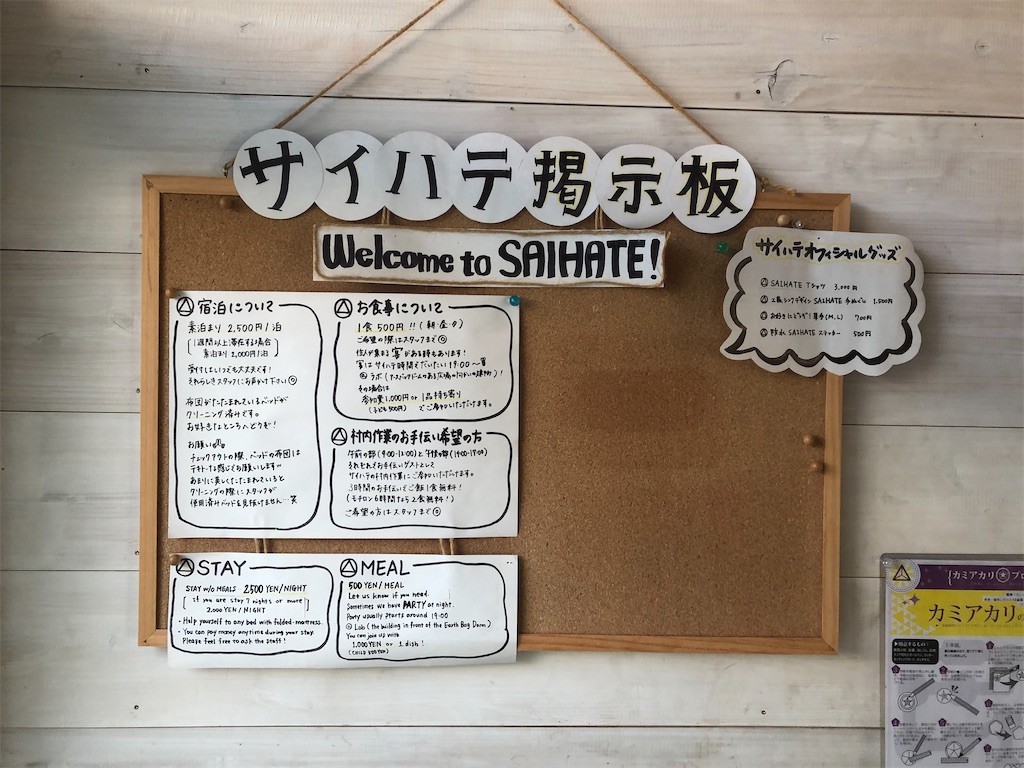 サイハテ掲示板
Welcome to SAIHATE!
サイハテオフィシャルグッズ
SAIHATE Tシャツ 3,000円
SAIHATE 手ぬぐい 1,500円
軍手(M,L) 700円
SAIHATE ステッカー 500円
宿泊について
素泊まり 2,500円/泊
1週間以上滞在する場合
素泊まり 2,000円/泊
受付はいつでも大丈夫です!
それらしきスタッフにお声がけ下さい
布団がたたまれているベッドが
クリーニング済みです。
お好きなところへどうぞ!
お願い
チェックアウトの際、ベッドの布団は
テキトーな感じでお願いします
あまりに美しくたたまれていると
クリーニングの際にスタッフが
使用済みベッドを見抜けません…笑
お食事について
1食 500円!! (朝・昼・夕)
ご希望の際はスタッフまで
住人が集まる宴がある時もあります!
宴はサイハテ時間でだいたい 19:00〜
その場合は
参加費1,000円 or 1品持ち寄り
(子ども500円) でご参加いただけます。
村内作業のお手伝い希望の方
午前の部 (9:00-12:00)と午後の部(14:00-17:00)
それぞれお手伝いゲストとして
サイハテの村内作業にご参加いただけます。
3時間のお手伝いでご飯1食無料!
(モチロン6時間なら2食無料!)
ご希望の方はスタッフまで
STAY
STAY w/o MEALS 2,500 YEN/NIGHT
[ if you are stay 7 nights or more ]
2,000 YEN/NIGHT
・Help yourself to any bed with folded-mattress.
・You can pay money anytime during your stay.
Please feel free to ask the staff!
MEAL
500 YEN/MEAL
Let us know if you need.
Sometimes we have PARTY at night.
Party usually starts around 19:00
@ Labo (the building in front of the Earth Bag Dorm)
You can join us with
1,000 YEN or 1 dish!
(CHILD 500 YEN)
カミアカリ
カミアカリの